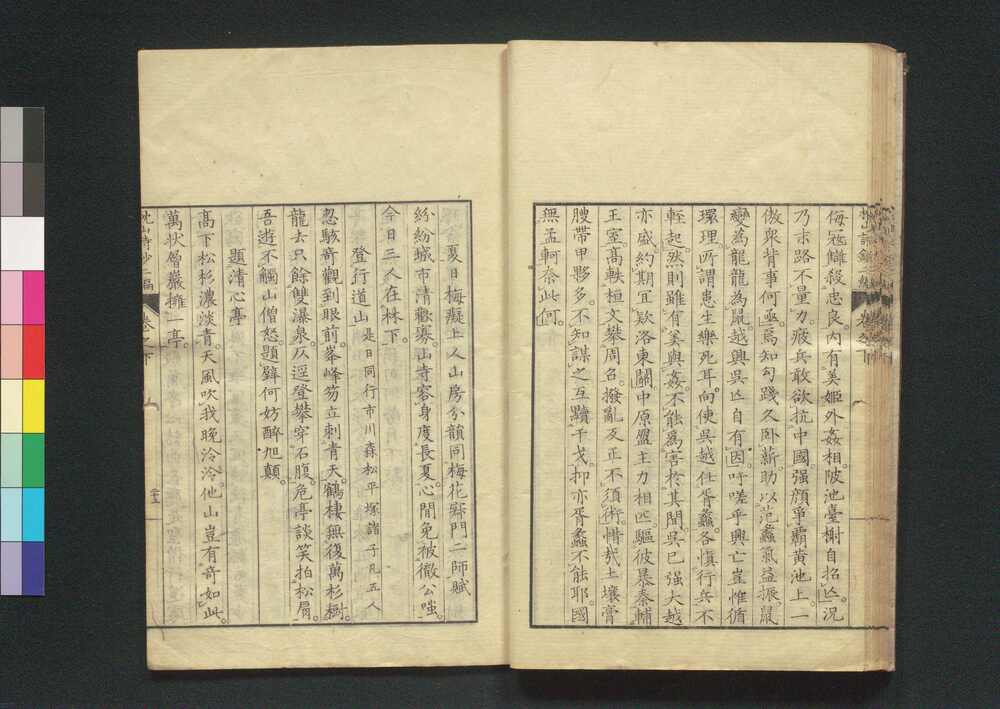 侮。冦讎殺忠良。內有美姬外姦相。陂池臺榭自招亾。況
乃末路不量力。疲兵敢欲抗中國。强顏爭霸黃池上。一
傲衆背事何亟。焉知勾踐久卧薪。助以范蠡氣益振。鼠
變為龍龍為鼠。越興吳亾自有因。吁嗟乎興亡豈惟循
環理。所謂患生樂死耳。向使吳越任胥蠡。各愼行兵不
輕起。然則雖有美與姦。不能爲害於其間。吳已强大越
亦盛。約期冝欵洛東關。中原盟主力相匹。驅彼暴秦輔
王室。高軼桓文攀周召。撥亂反正不須術。惜哉土壤膏
腴帶甲夥多。不知謀之互黷干戈。抑亦胥蠡不能耶。國
無孟軻奈此何。
夏日梅癡上人山房分韻同梅花 門二師賦
紛紛城市清歡寡。山寺容身度長夏。心閒免被徹公嗤。
今日三人在林下。
登行道山 是日同行市川森松平塚諸子凡五人
忽駭奇觀到眼前。峯峰笏立刺青天。鶴棲無復萬杉樹。
龍去只餘雙瀑泉。仄逕登攀穿石腹。危亭談笑拍松肩。
吾遊不觸山僧怒。題壁何妨醉旭顛。
題清心亭
高下松杉濃淡青。天風吹我晚泠泠。他山豈有奇如此。
萬狀層巖擁一亭。
枕山詩鈔二編 卷之下